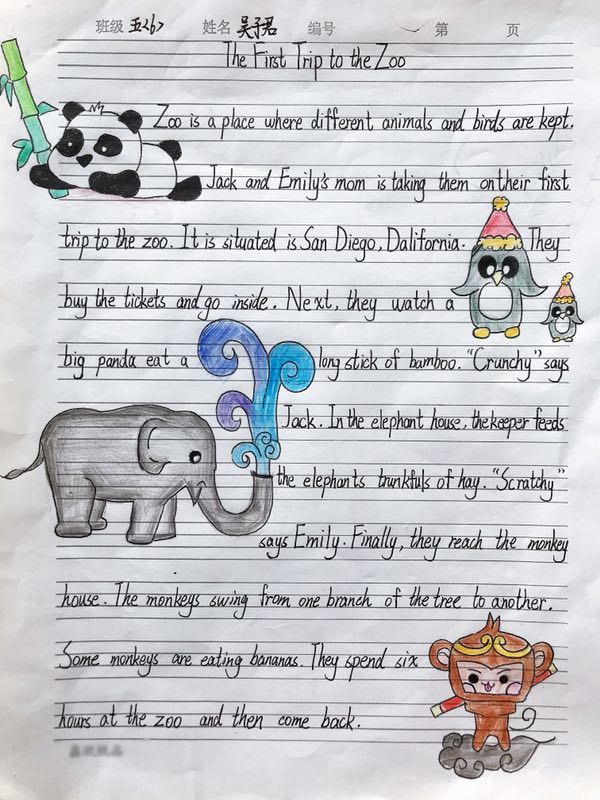 班级 五<6> 姓名 吴子君 编号 第 页
The First Trip to the Zoo
Zoo is a place where different animals and birds are kept.
Jack and Emily's mom is taking them on their first
trip to the zoo. It is situated is San Diego, Dalifornia. They
buy the tickets and go inside. Next, they watch a
big panda eat a long stick of bamboo. "Crunchy" says
Jack. In the elephant house, the keeper feeds
the elephants trunkfuls of hay. "Scratchy"
says Emily. Finally, they reach the monkey
house. The monkeys swing from one branch of the tree to another.
Some monkeys are eating bananas. They spend six
hours at the zoo and then come back.